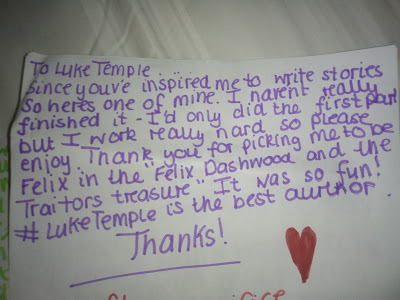 To Luke Temple ....
Since you've inspired me to write stories
so heres one of mine. I havent really
finished it - I'd only did the first part
but I work really hard so please
enjoy. Thank you for picking me to be
Felix in the "Felix Dashwood and the
Traitors treasure". It was so fun!
# Luke Temple is the best author.
Thanks!